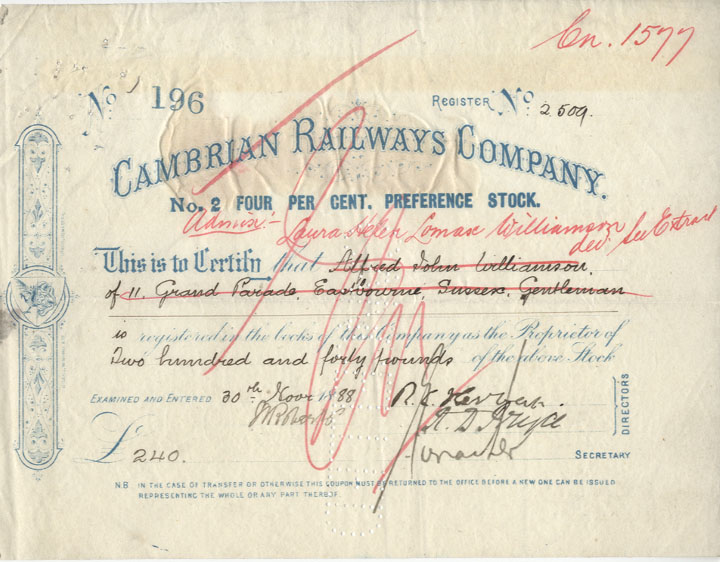 Cn. 1577
No 196
REGISTER No 2509.
CAMBRIAN RAILWAYS COMPANY.
No. 2 FOUR PER CENT. PREFERENCE STOCK.
Admix:- Laura Helen Lomax Williamson
dec. See Extract
This is to Certify that Alfred John Williamson,
of 11. Grand Parade, Eastbourne, Sussex, Gentleman
is registered in the books of this Company as the Proprietor of
Two hundred and forty pounds of the above Stock
EXAMINED AND ENTERED 30th Novr 1888
DIRECTORS
£ 240.
SECRETARY
N.B. IN THE CASE OF TRANSFER OR OTHERWISE THIS COUPON MUST BE RETURNED TO THE OFFICE BEFORE A NEW ONE CAN BE ISSUED
REPRESENTING THE WHOLE OR ANY PART THEREOF.